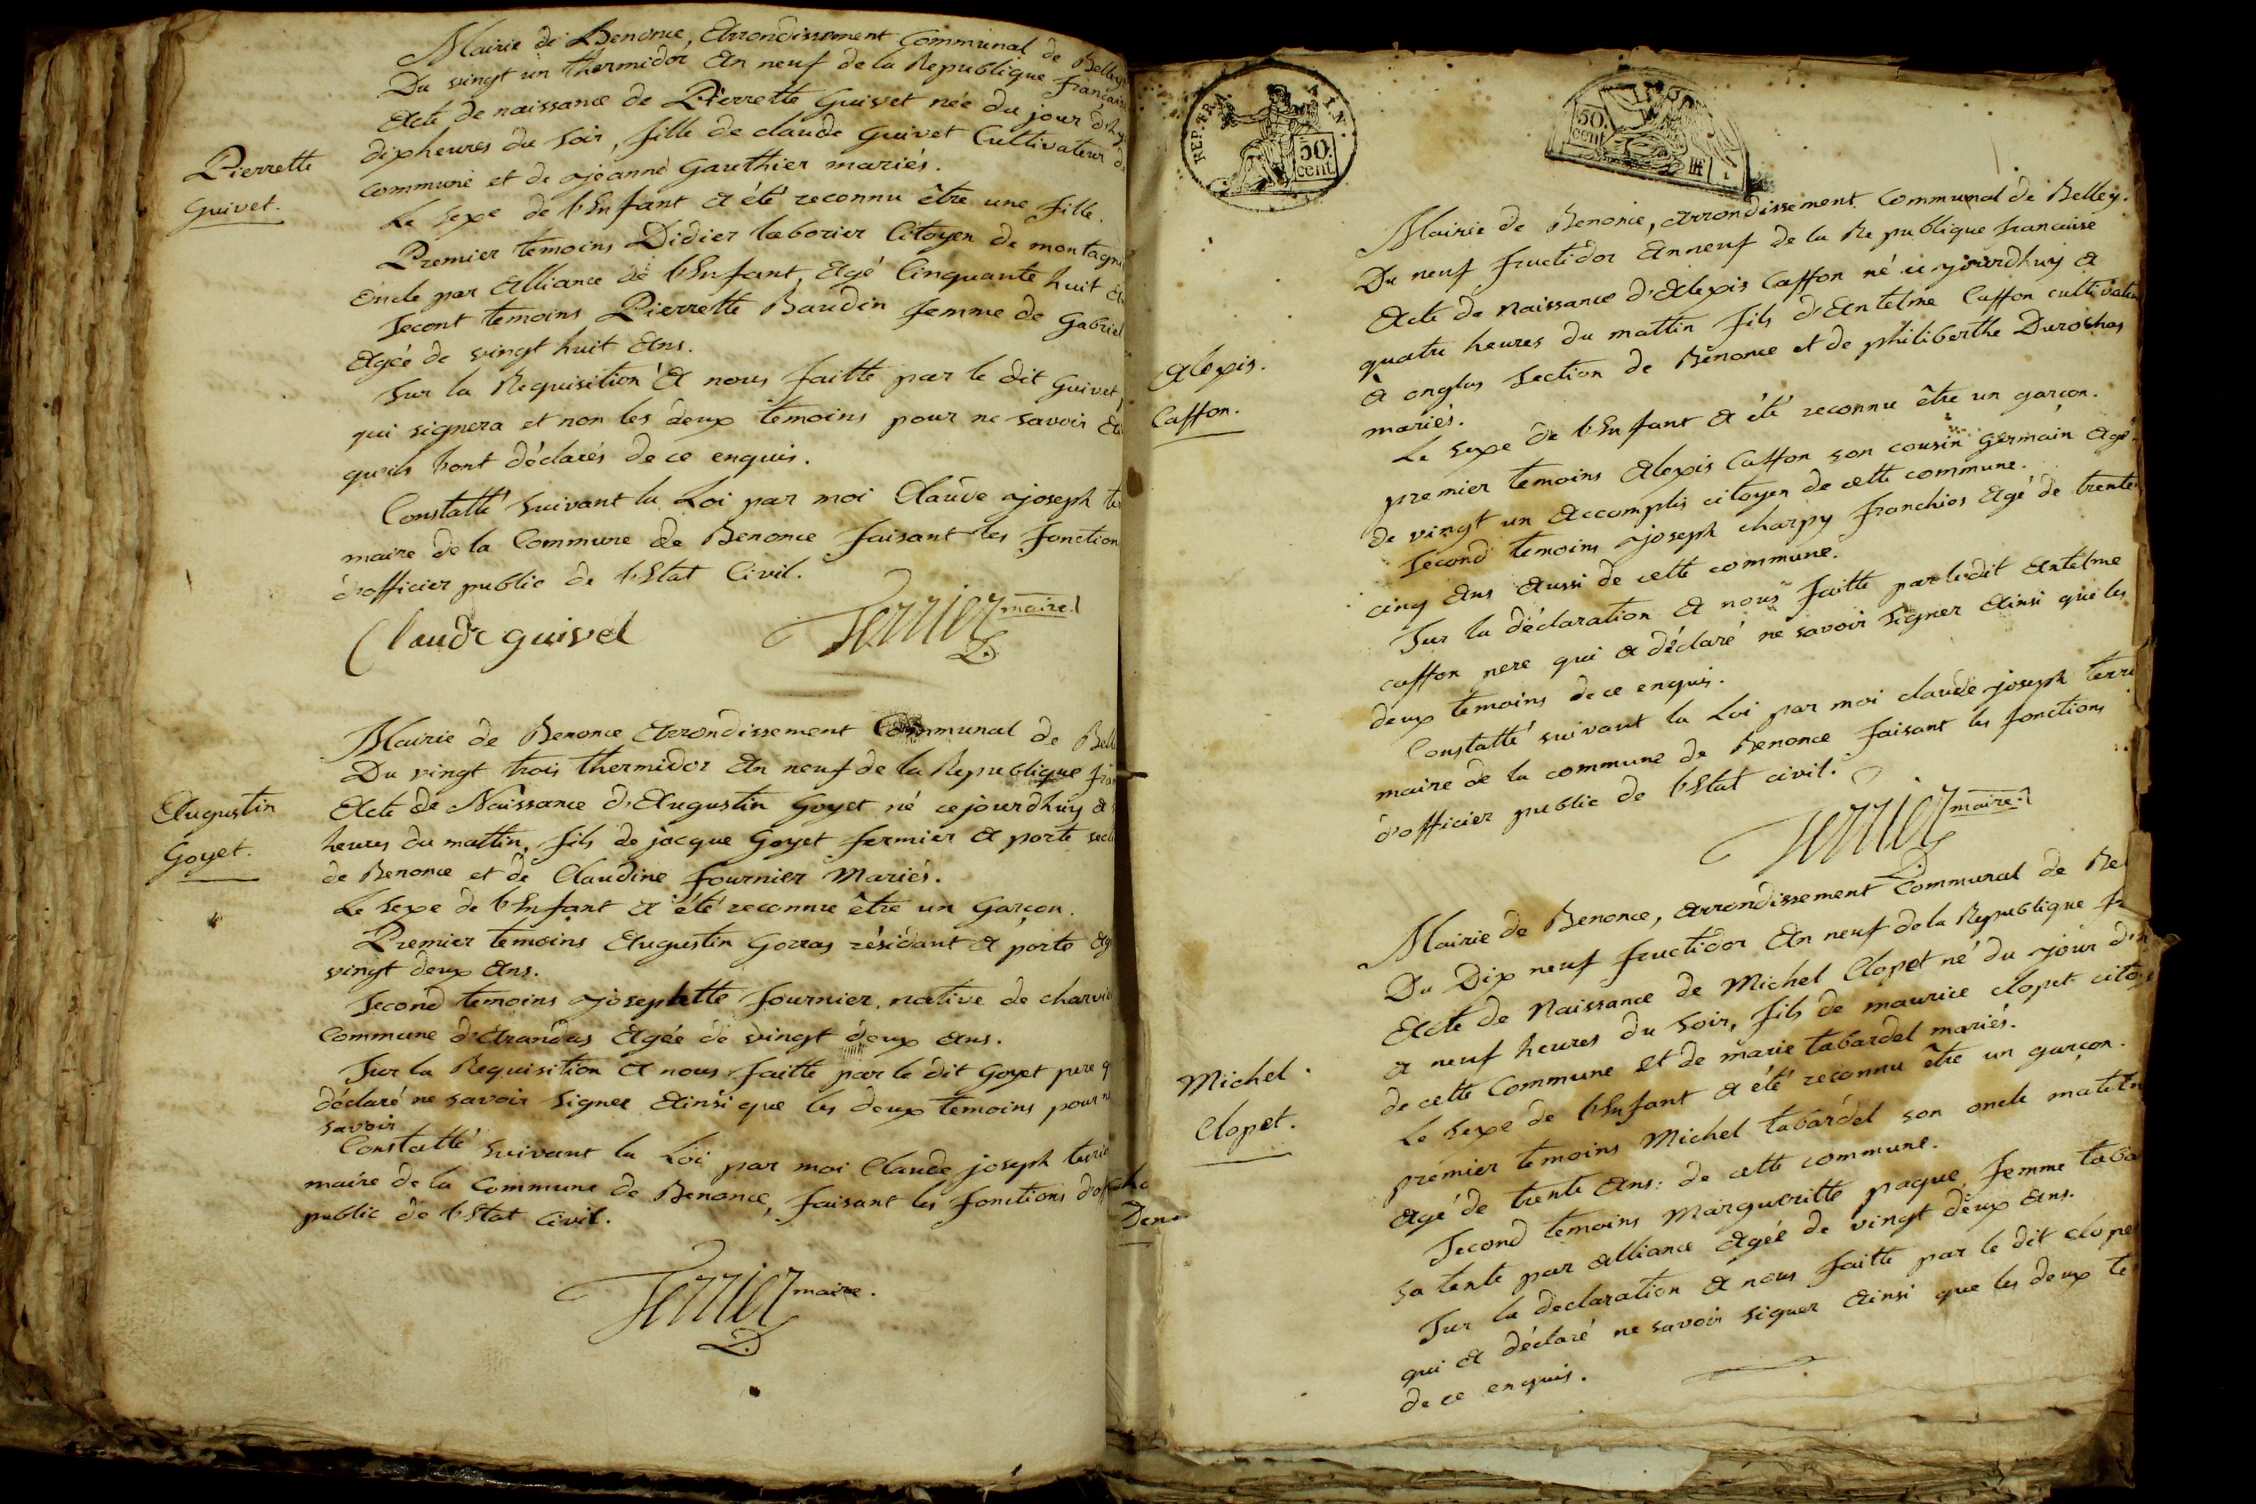 Mairie de Benonce, Arrondissement Communal de Belley
Du vingt un thermidor An neuf de la Republique francais
Acte de naissance de Pierrette Guivet née du jour d'hy
dix heures du soir, fille de claude Guivet Cultivateur de
Commune et de jeanne Gauthier mariés.
Pierrette
Guivet.
Le sexe de l'Enfant a été reconnu être une fille.
Premier temoins Didier laborier Citoyen de montagni
oncle par Alliance de l'Enfant, Agé Cinquante huit
Secont temoins Pierrette Baudin femme de Gabriel
Agée de vingt huit Ans.
Sur la Requisition A nous faitte par le dit Guivet,
qui signera et non les deux temoins pour ne savoir
qu'ils hont déclarés de ce enquis.
Constatté suivant la Loi par moi Claude joseph
maire de la Commune de Benonce faisant les fonction
d'officier public de l'Etat Civil.
Claude guivet
Terrier maire
Mairie de Benonce Arrondissement Communal de Bell
Du vingt trois thermidor An neuf de la Republique fran
Acte de Naissance d'Augustin Goyet né cejourdhuy a
heures du mattin, fils de jacque Goyet fermier A porte sect
de Benonce et de Claudine fournier Mariés.
Augustin
Goyet.
Le sexe de l'Enfant a été reconnu être un Garçon.
Premier temoins Augustin Gorras résidant a porte Ag
vingt deux Ans.
Second temoins josephette fournier, native de charvi
Commune d'Arandas Agée de vingt deux Ans.
Sur la Requisition A nous faitte par le dit Goyet pere q
déclaré ne savoir Signer Ainsi que les deux temoins pour n
savoir
Constatté suivant la Loi par moi Claude joseph terrie
maire de la Commune de Benonce, faisant les fonctions d'off
public de l'Etat Civil.
Terrier maire.
REP. FRA.
AIN.
50
cent.
50.
cent
Mairie de Benonce, Arrondissement Communal de Belley.
Du neuf fructidor An neuf de la Republique francaise
Acte de Naissance d'Alexis Caffon né ce jourdhuy A
quatre heures du mattin fils d'Antelme Caffon cultivateur
A onglas Section de Benonce et de philiberthe Durochas
mariés.
Alexis.
Caffon.
Le sexe de l'Enfant A été reconnu être un garçon.
premier temoins Alexis Caffon son cousin germain Agé
de vingt un Accomplis citoyen de cette commune.
Second temoins joseph charpy franchios Agé de trente
cinq Ans Aussi de cette commune.
Sur la déclaration A nous faitte par ledit Antelme
caffon pere qui A déclaré ne savoir Signer Ainsi que les
deux temoins de ce enquis.
Constatté suivant la Loi par moi claude joseph terri
maire de la commune de Benonce faisant les fonctions
d'officier public de l'Etat civil.
Terrier maire
Mairie de Benonce, Arrondissement Communal de Bel
Du Dix neuf fructidor An neuf de la Republique fr
Acte de Naissance de Michel Clopet né du jour d'h
a neuf heures du Soir, fils de maurice clopet citoye
de cette Commune et de marie tabardel mariés.
Michel.
Clopet.
Le sexe de l'Enfant A été reconnu être un garçon.
premier temoins Michel tabardel son oncle matern
Agé de trente Ans: de cette commune.
Second temoins Margueritte paque femme taba
sa tente par alliance Agée de vingt deux ans.
Sur la declaration A nous faitte par le dit clope
qui A déclaré ne savoir signer Ainsi que les deux te
de ce enquis.